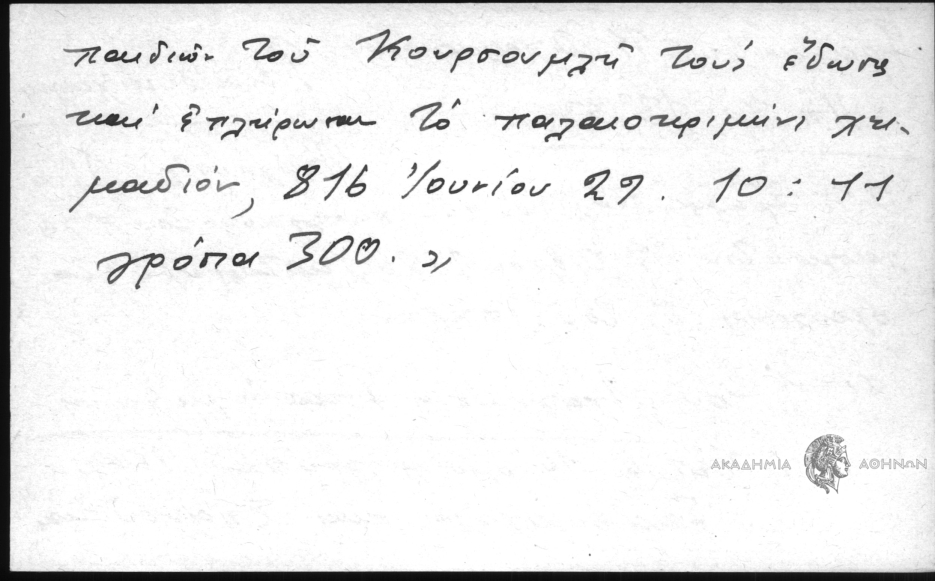 παιδιῶν τοῦ Κουρσουμλῆ τούς ἔδωσα
καί ἐπλήρωσαν τό παλαιοκριμένι χη-
μαδιόν, 816 Ἰουνίου 29. 10 : 11
γρόσια 300. »
ΑΚΑΔΗΜΙΑ ΑΘΗΝΩΝ